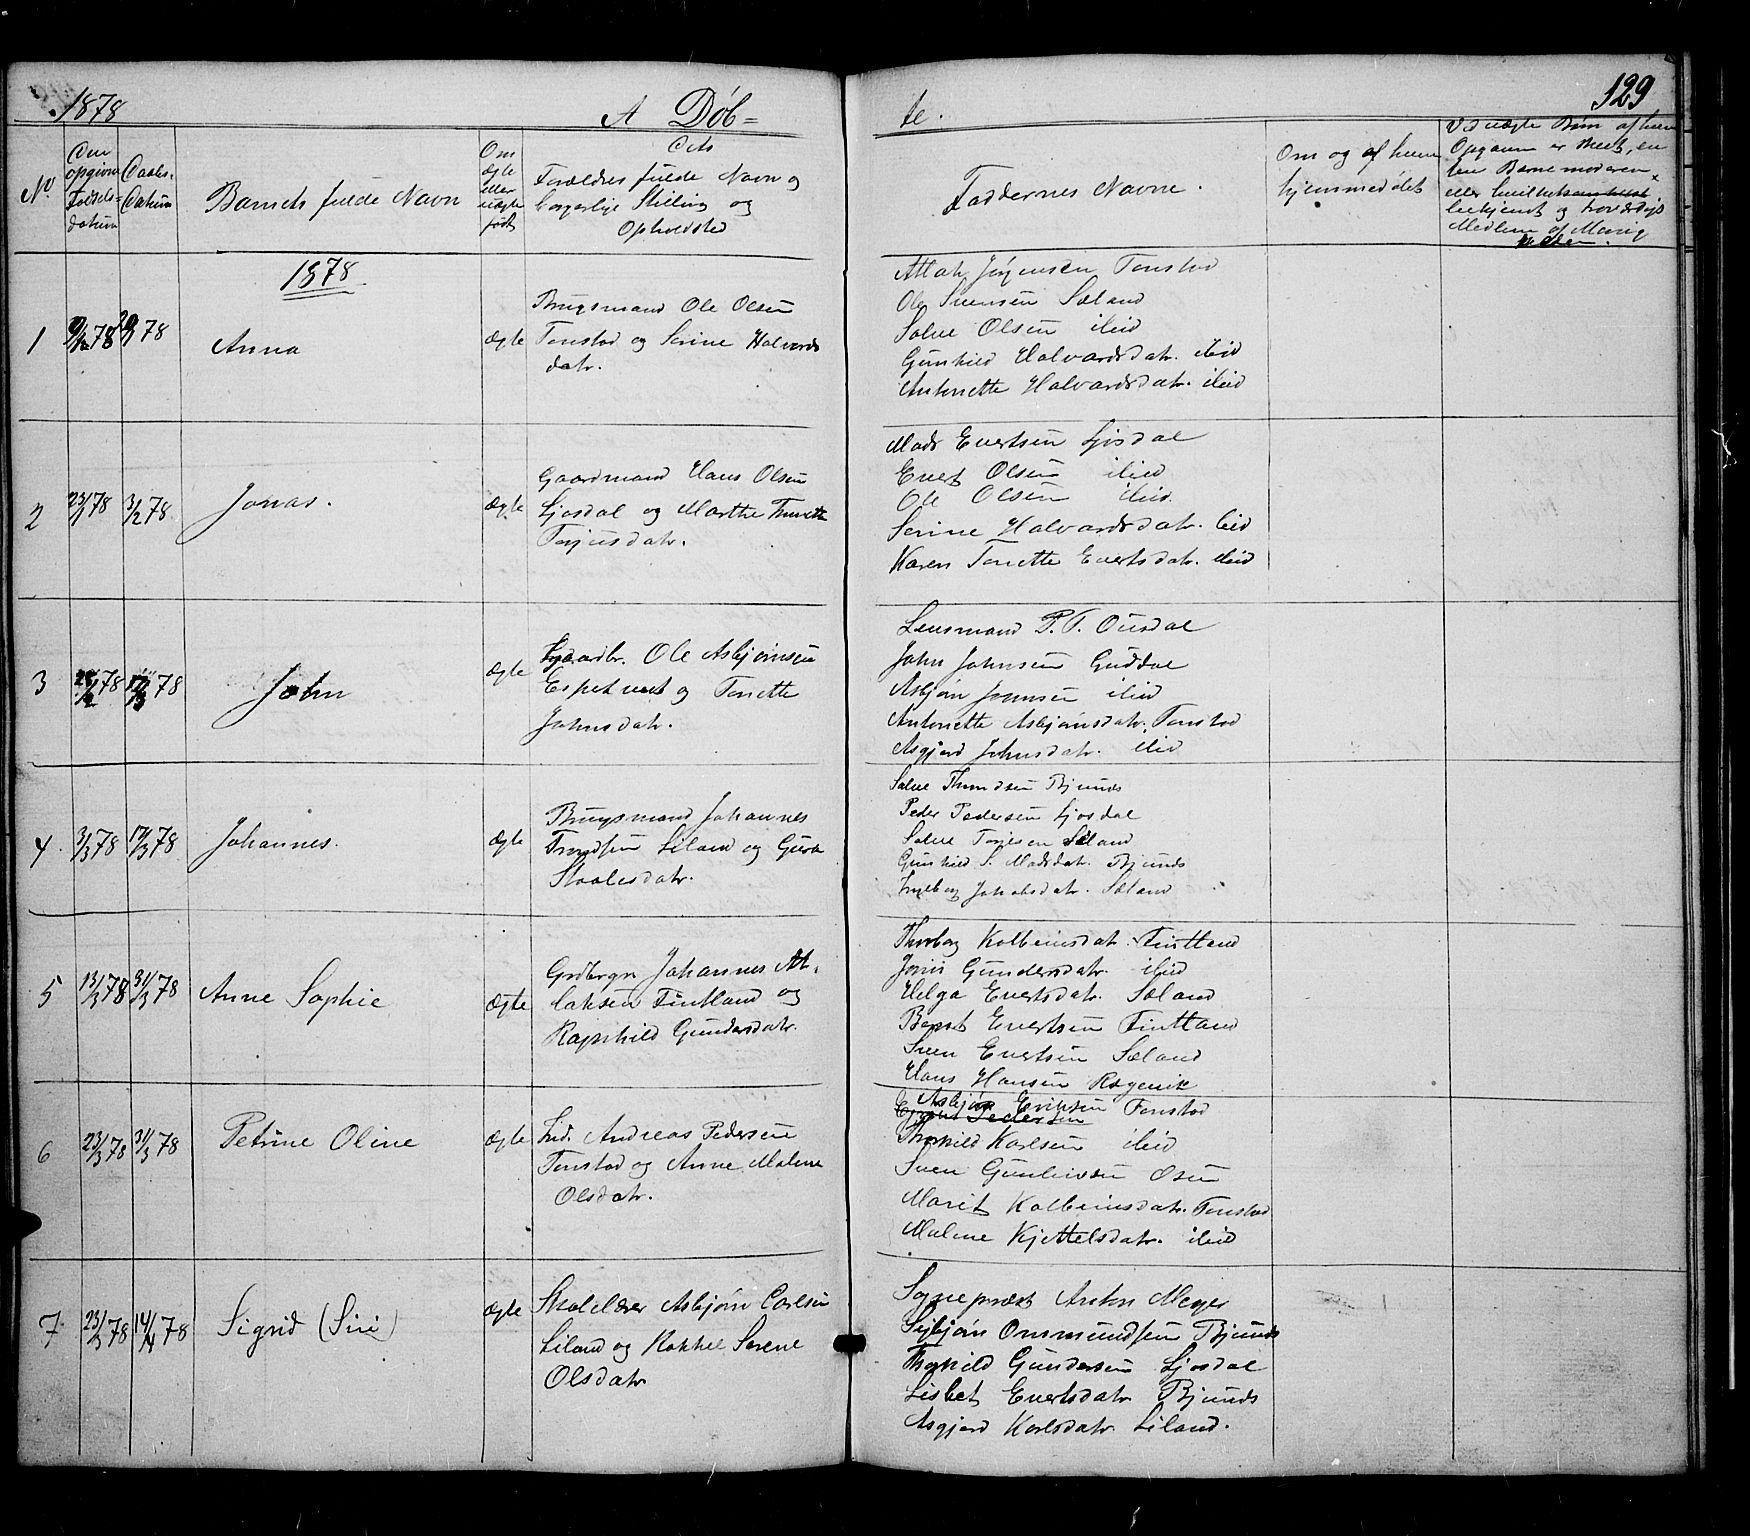 1878
A Døb=
te.
129
No.
Den
opgivne
Fødsels-
datum
Daabs-
Datum
Barnets fulde Navn
Om
ægte
eller
uægte
født
Dets
Forældres fulde Navn og
borgerlige Stilling og
Opholdsted
Faddernes Navne.
Om og af hvem
hjemmedøbt
Ved uægte Børn af hvem
Opgaven er skeet, en
ten Barnemoderen
eller
bekjendt og troværdigt
Medlem af Menig
heden.
1878
1
78
78
Anna
ægte
Brugsmand Ole Olsen
Tonstad og Serine Halvards
datr.
Atlak Jørgensen Tonstad
Ole Svensen Sæland
Salve Olsen ibid
Gunhild Halvardsdatr. ibid
Antonette Halvardsdatr. ibid
2
23/1 78
3/2 78
Jonas.
ægte
Gaardmand Hans Olsen
Ljosdal og Marthe Tonette
Terjesdatr.
Mads Evertsen Ljosdal
Evert Olsen ibid
Ole Olsen ibid.
Serine Halvardsdatr. ibid
Karen Tonette Evertsdatr. ibid
3
/2 78
17/3 78
John
ægte
Gaardbr. Ole Asbjørnsen
Espetveit og Tonette
Johnsdatr.
Lensmand P. T. Ousdal
John Johnsen Guddal
Asbjørn Jonnsen ibid
Antonette Asbjørnsdatr. Tonstad
Asgjerd Johnsdatr. ibid
4
3/3 78
17/3 78
Johannes.
ægte
Brugsmand Johannes
Trondsen Liland og Guro
Staalesdatr.
Salve Throndsen Bjunes
Peder Pedersen Ljosdal
Salve Torjesen Sæland
Gunhild S. Madsdatr. Bjunes
Ingeborg Jakobsdatr. Sæland
5
13/3 78
31/3 78
Anne Sophie
ægte
Grdbrgr Johannes At-
laksen Fintland og
Ragnhild Gundersdatr.
Thorborg Kolbeinsdatr. Fintland
Joren Gundersdatr. ibid
Helga Evertsdatr. Sæland
Berent Evertsen Fintland
Sven Evertsen Sæland
Hans Hansen Røgevik
6
23/3 78
31/3 78
Petrine Oline
ægte
Ind. Andreas Pedersen
Tonstad og Anne Malene
Olsdatr.
Asbjørn Eriksen Tonstad
Pedersen
Thorkild Karlsen ibid
Sven Gunleivsen Osen
Marit Kolbeinsdatr. Tonstad
Malene Kjettelsdatr. ibid
7
23/3 78
14/4 78
Sigrid (Siri)
ægte
Skolelærer Asbjørn Carlsen
Liland og Rakkel Serene
Olsdatr
Sognepræst Anton Meyer
Seibjørn Ommundsen Bjunes
Thorkild Gundersen Ljosdal
Lisbet Evertsdatr Bjunes
Asgjerd Karlsdatr Liland.